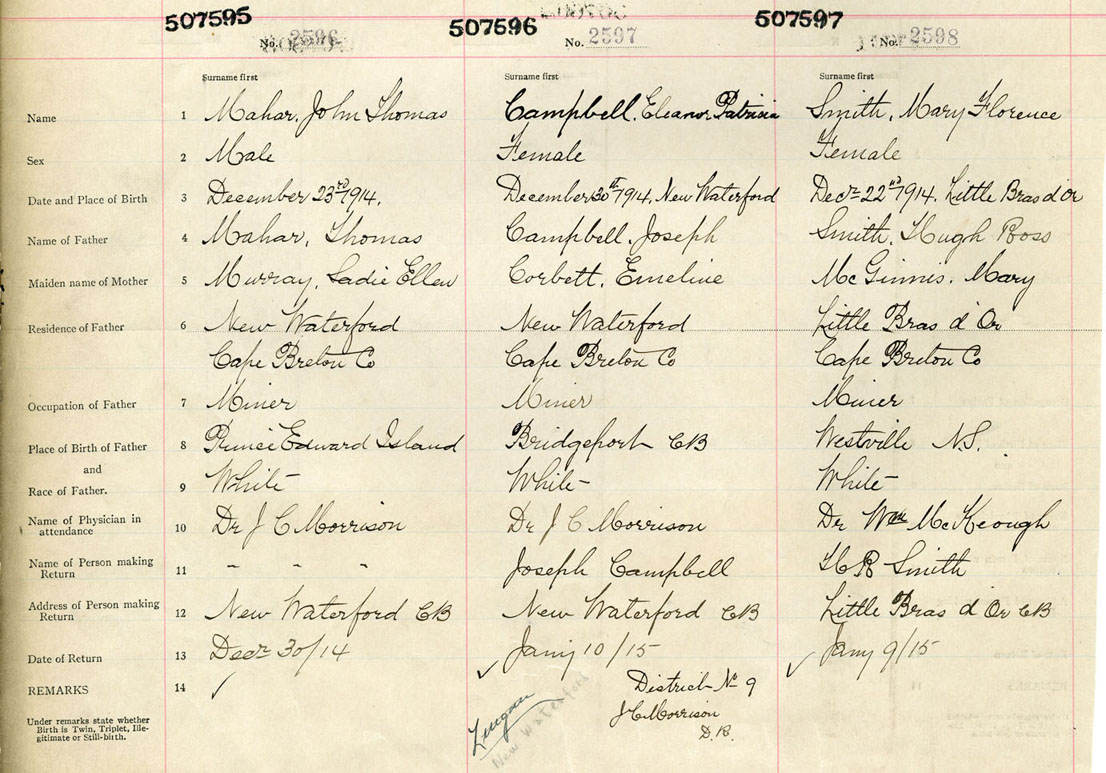 507595 507596 507597
No. 2596 No. 2597 No. 2598
Surname first Surname first Surname first
Name 1 Mahar, John Thomas Campbell, Eleanor Patricia Smith, Mary Florence
Sex 2 Male Female Female
Date and Place of Birth 3 December 23rd 1914. December 30th 1914, New Waterford Decr 22nd 1914. Little Bras d'Or
Name of Father 4 Mahar, Thomas Campbell, Joseph Smith, Hugh Ross
Maiden name of Mother 5 Murray, Sadie Ellen Corbett, Emeline McGinnis, Mary
Residence of Father 6 New Waterford New Waterford Little Bras d'Or
Cape Breton Co Cape Breton Co Cape Breton Co
Occupation of Father 7 Miner Miner Miner
Place of Birth of Father 8 Prince Edward Island Bridgeport CB Westville N.S.
and
Race of Father. 9 White White White
Name of Physician in attendance 10 Dr J C Morrison Dr J C Morrison Dr Wm McKeough
Name of Person making Return 11 " " " Joseph Campbell H R Smith
Address of Person making Return 12 New Waterford CB New Waterford CB Little Bras d'Or CB
Date of Return 13 Decr 30/14 Jany 10/15 Jany 9/15
REMARKS 14 ✓ District No 9
Under remarks state whether
Birth is Twin, Triplet, Ille-
gitimate or Still-birth.
J C Morrison
D.R.
Lingan
New Waterford